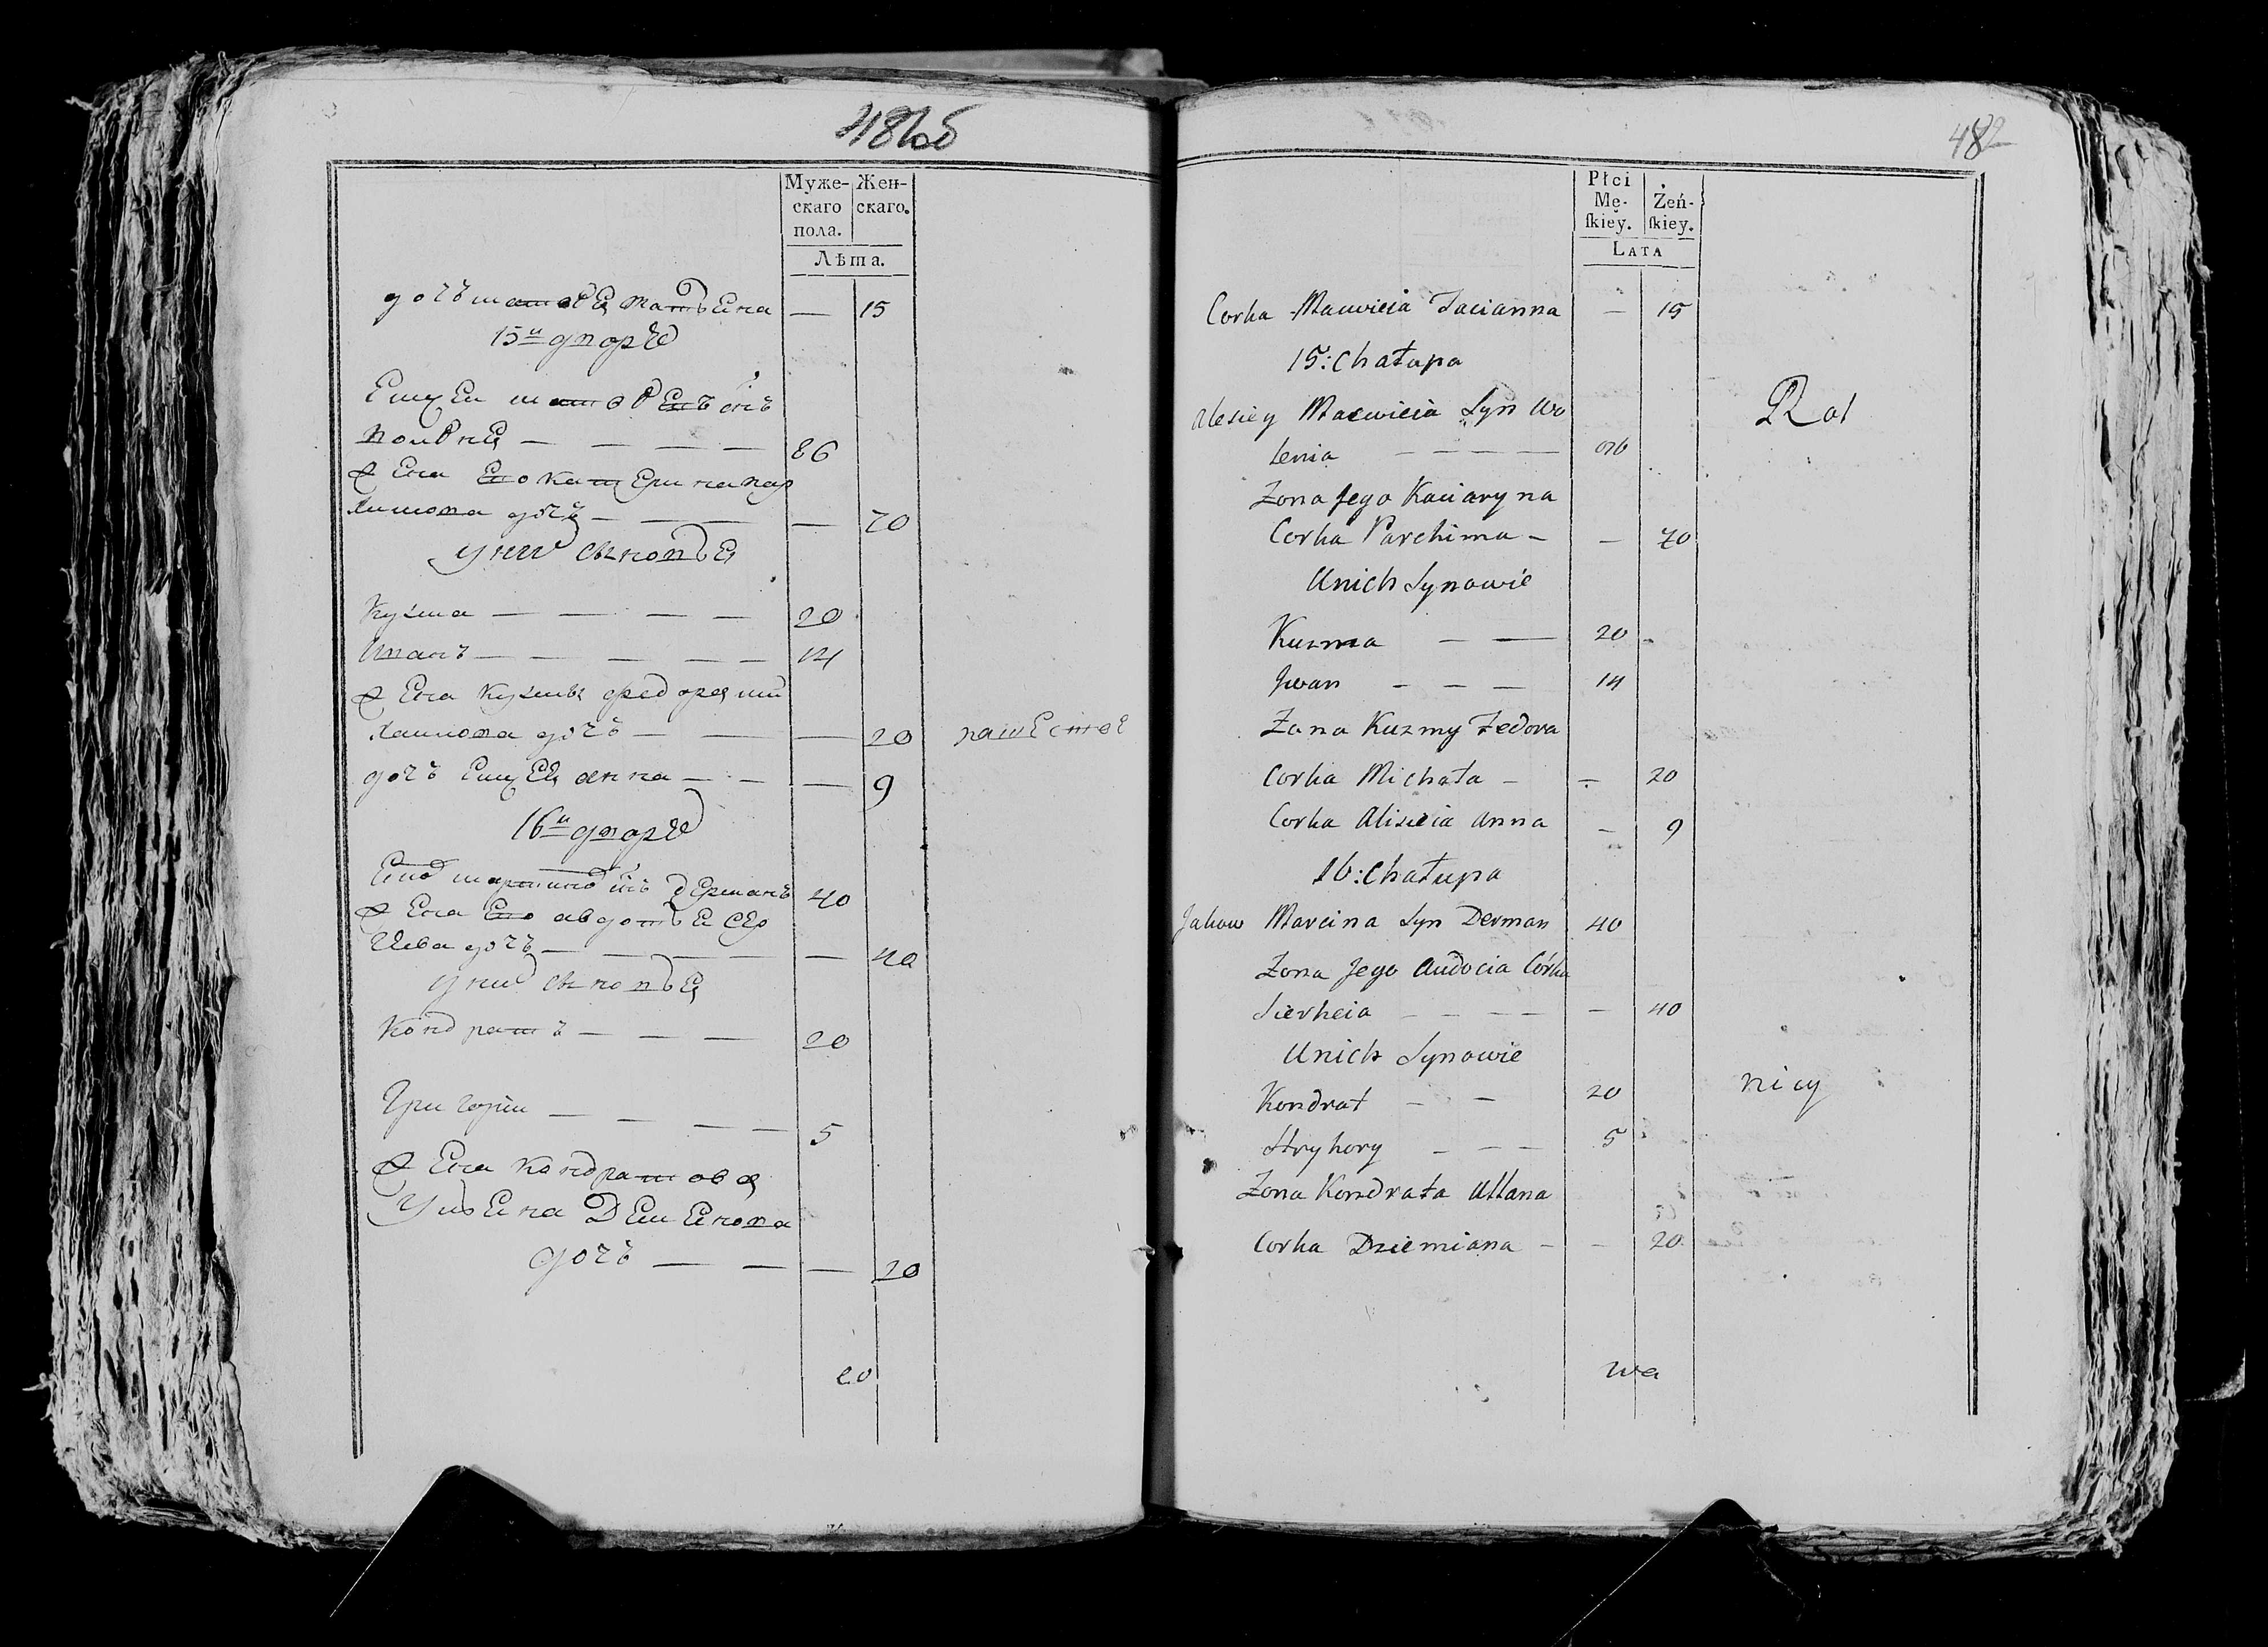 481об
Муже-
скаго
пола.
Жен-
скаго.
Лѣта.
дочъ матвея татьяна — 15
15й дворъ
волѣня — — — — 86
жена его катерина пар
химова дочъ — — — — 70
у них сыновья
Кузма — — — — 20
Иванъ — — — — — 14
жена кузмы федоря ми
хаилова дочъ — — — 20
анна — — — 9
16й дворъ
Яков мартинов снъ дерманъ 40
жена его авдотья сер
геева дочъ — — — — — 40
у них сыновья
Кондратъ — — — 20
Григори — — — — 5
жена кондратова
Ульяна Деменова
дочъ — — — 20
со
482
Płci
Mę-
ſkiey.
Żeń-
ſkiey.
Lata
Corka Macwieia Tacianna — 15
15: Chałupa
Alesiey Macwieia Syn Wo
lenia — — — — 86
Zona Jego Kaciaryna
Corka Parchima — — 70
Unich Synowie
Kuzma — — 20
Jwan — — — 14
Zona Kuzmy Fedora
Corka Michała — — 20
Corka Alisieia Anna — 9
16: Chałupa
Jakow Marcina Syn Derman 40
Zona Jego Audocia Córka
Sierheia — — — — — 40
Unich Synowie
Kondrat — — 20
Hryhory — — — 5
Zona Kondrata Ullana
Corka Dziemiana — — 20
Rol
nicy
wa